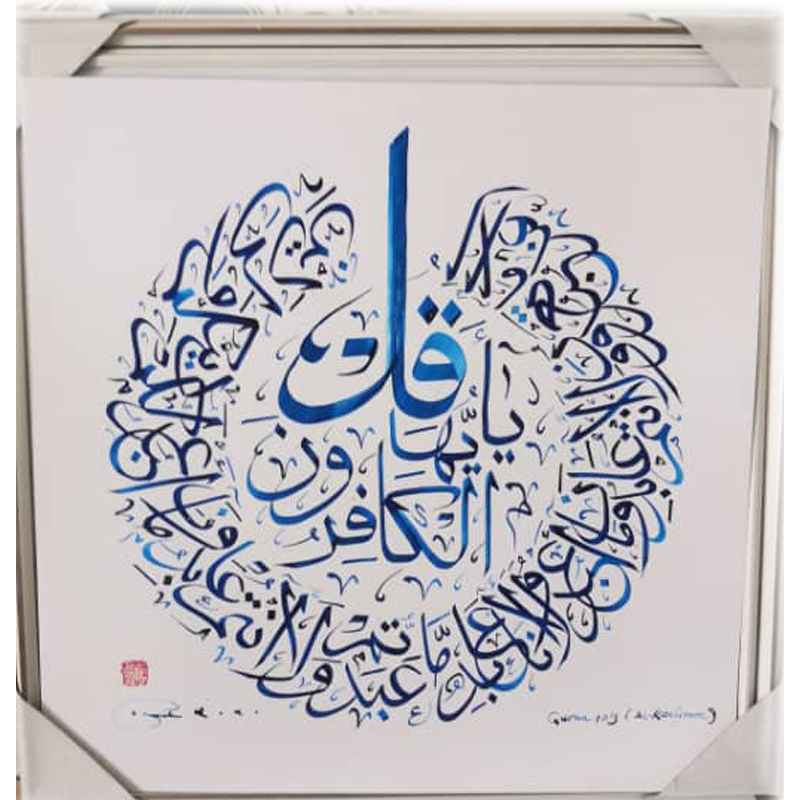 قل
يأيُّها
الكافرون
لا أعبد ما تعبدون ولا أنتم عابدون ما أعبد ولا أنا عابد مَّا عبدتُّم ولا أنتم عابدون ما أعبد لكم دينكم ولي دين
Quran 109